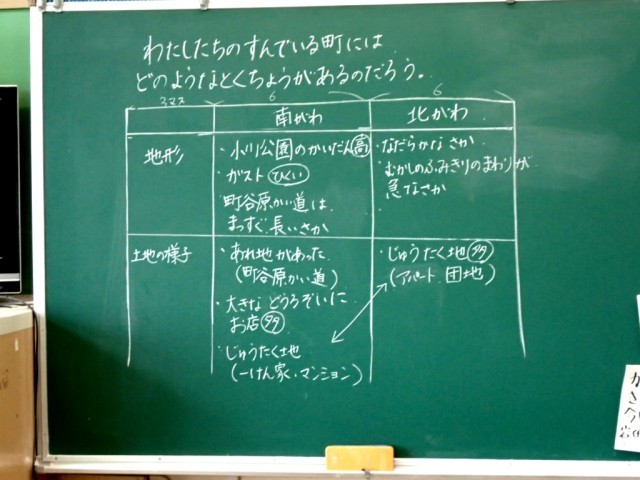 わたしたちのすんでいる町には
どのようなとくちょうがあるのだろう。
3マス 6 6
南がわ 北がわ
地形
・小川公園のかいだん高
・ガスト ひくい
・町谷原かい道は
まっすぐ、長いさか
・なだらかなさか
・むかしのふみきりのまわりが
急なさか
土地の様子
・あれ地があった
(町谷原かい道)
・大きなどうろぞいに
お店多
・じゅうたく地
(一けん家・マンション)
・じゅうたく地多
(アパート 団地)